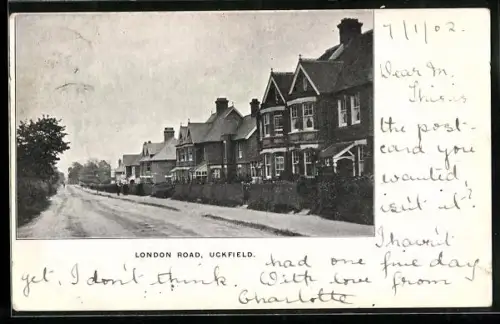 7/1/02
Dear M.
This is
the post-
card you
wanted,
isn't it?
I havn't
LONDON ROAD, UCKFIELD.
had one fine day
yet, I don't think. With love from
Charlotte